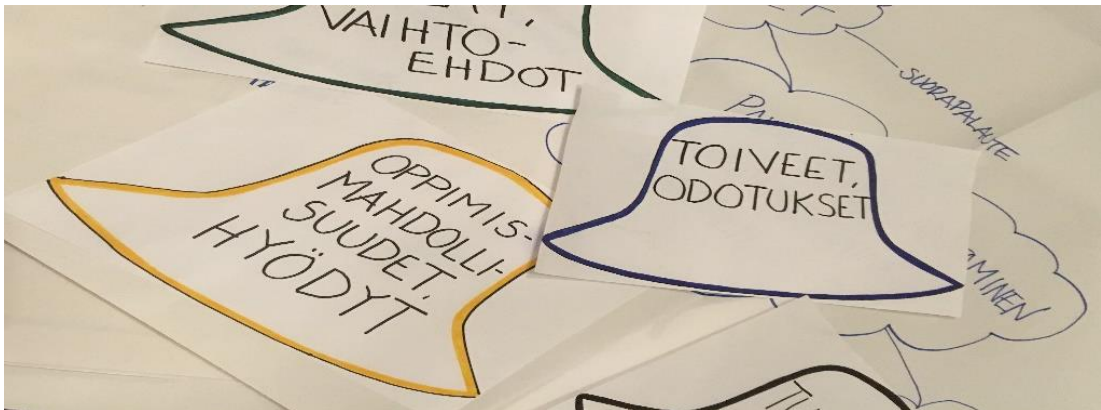 VAIHTO-
EHDOT
OPPIMIS-
MAHDOLLI-
SUUDET,
HYÖDYT
TOIVEET,
ODOTUKSET
SUORAPALAUTE